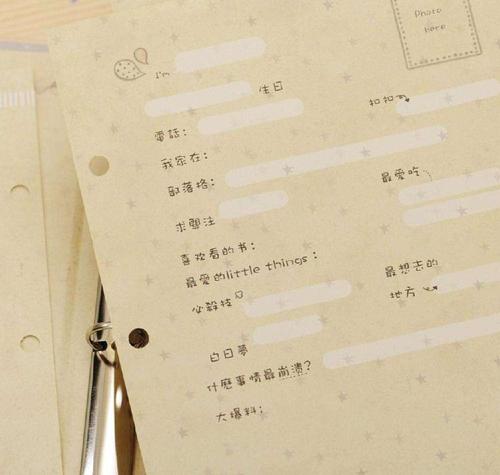 Photo
Here
I'm
生日
扣扣
電話：
我家在：
部落格：
最愛吃
求關注
喜欢看的书：
最愛的little things：
最想去的
必殺技
地方
白日夢
什麼事情最崩潰？
大爆料：